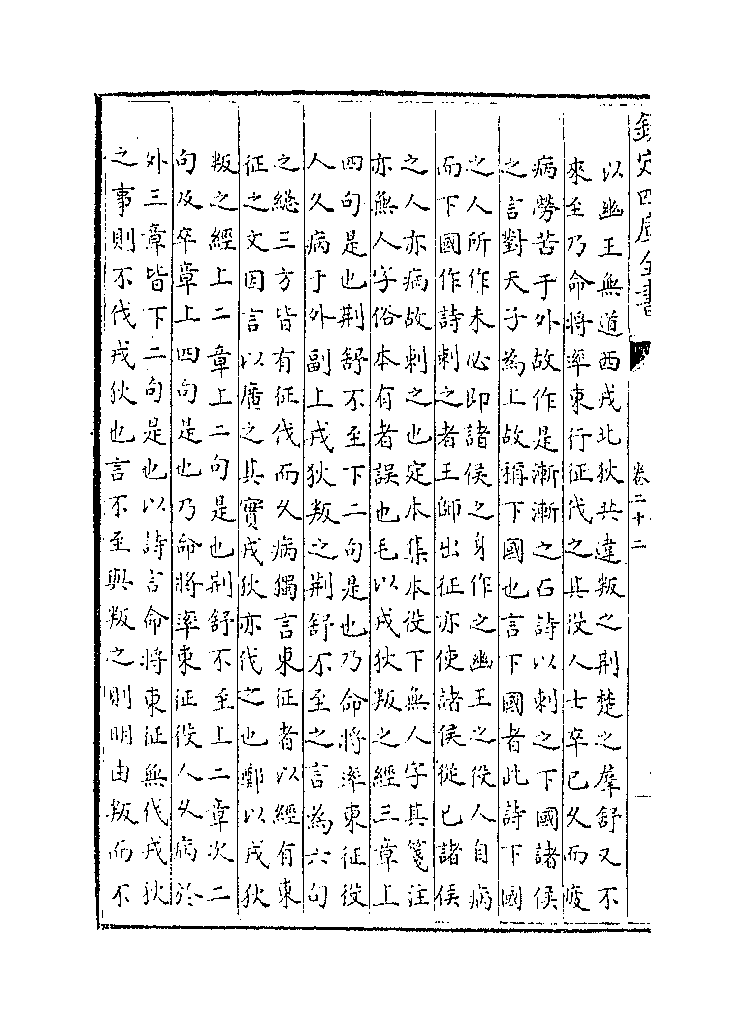 欽定四庫全書
卷二十二
以幽王無道西戎北狄共違叛之荆楚之羣舒又不
來至乃命將率東行征伐之其役人士卒已久而疲
病勞苦于外故作是漸漸之石詩以刺之下國諸侯
之言對天子為上故稱下國也言下國者此詩下國
之人所作未必即諸侯之身作之幽王之役人自病
而下國作詩刺之者王師出征亦使諸侯從已諸侯
之人亦病故刺之也定本集本役下無人字其箋注
亦無人字俗本有者誤也毛以戎狄叛之經三章上
四句是也荆舒不至下二句是也乃命將率東征役
人久病于外副上戎狄叛之荆舒不至之言為六句
之總三方皆有征伐而久病獨言東征者以經有東
征之文因言以廣之其實戎狄亦伐之也鄭以戎狄
叛之經上二章上二句是也荆舒不至上二章次二
句及卒章上四句是也乃命將率東征役人久病於
外三章皆下二句是也以詩言命將東征無伐戎狄
之事則不伐戎狄也言不至與叛之則明由叛而不